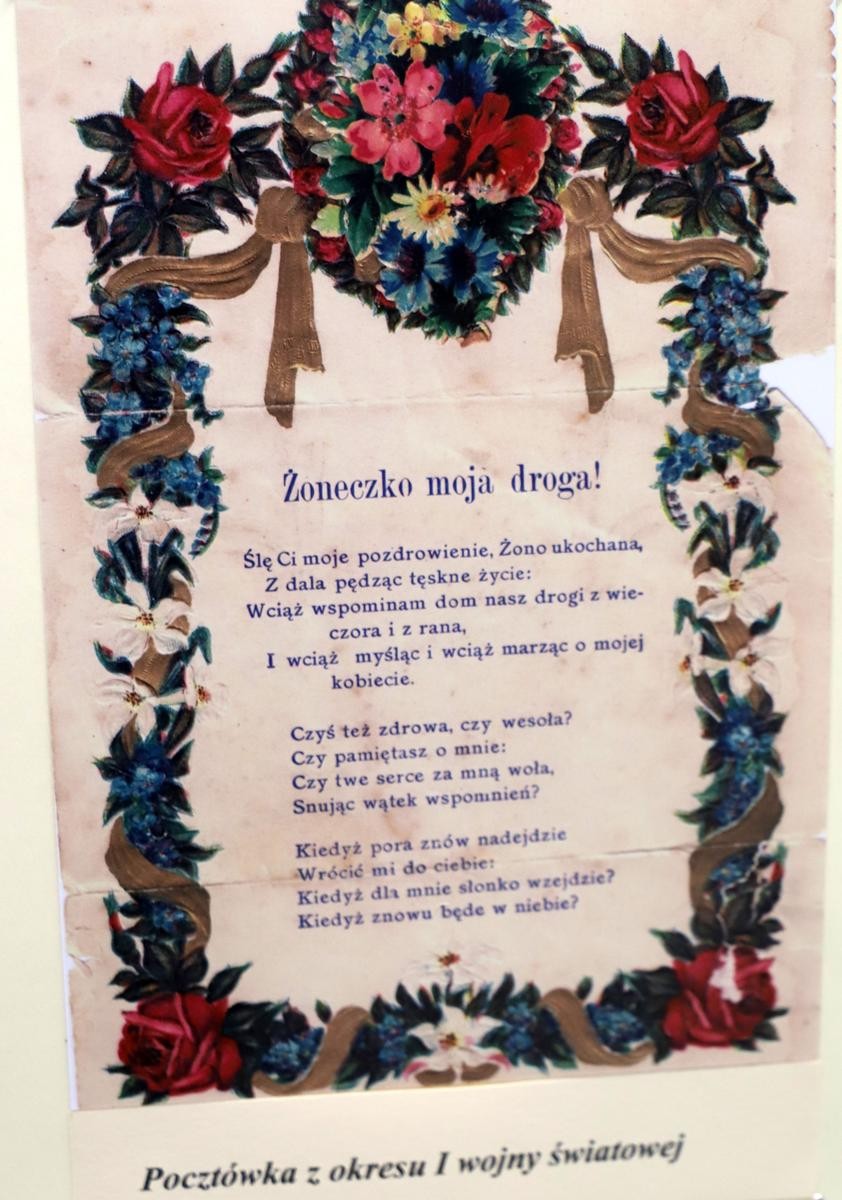 Żoneczko moja droga!
Ślę Ci moje pozdrowienie, Żono ukochana,
Z dala pędząc tęskne życie:
Wciąż wspominam dom nasz drogi z wie-
czora i z rana,
I wciąż myśląc i wciąż marząc o mojej
kobiecie.
Czyś też zdrowa, czy wesoła?
Czy pamiętasz o mnie:
Czy twe serce za mną woła,
Snując wątek wspomnień?
Kiedyż pora znów nadejdzie
Wrócić mi do ciebie:
Kiedyż dla mnie słonko wzejdzie?
Kiedyż znowu będe w niebie?
Pocztówka z okresu I wojny światowej